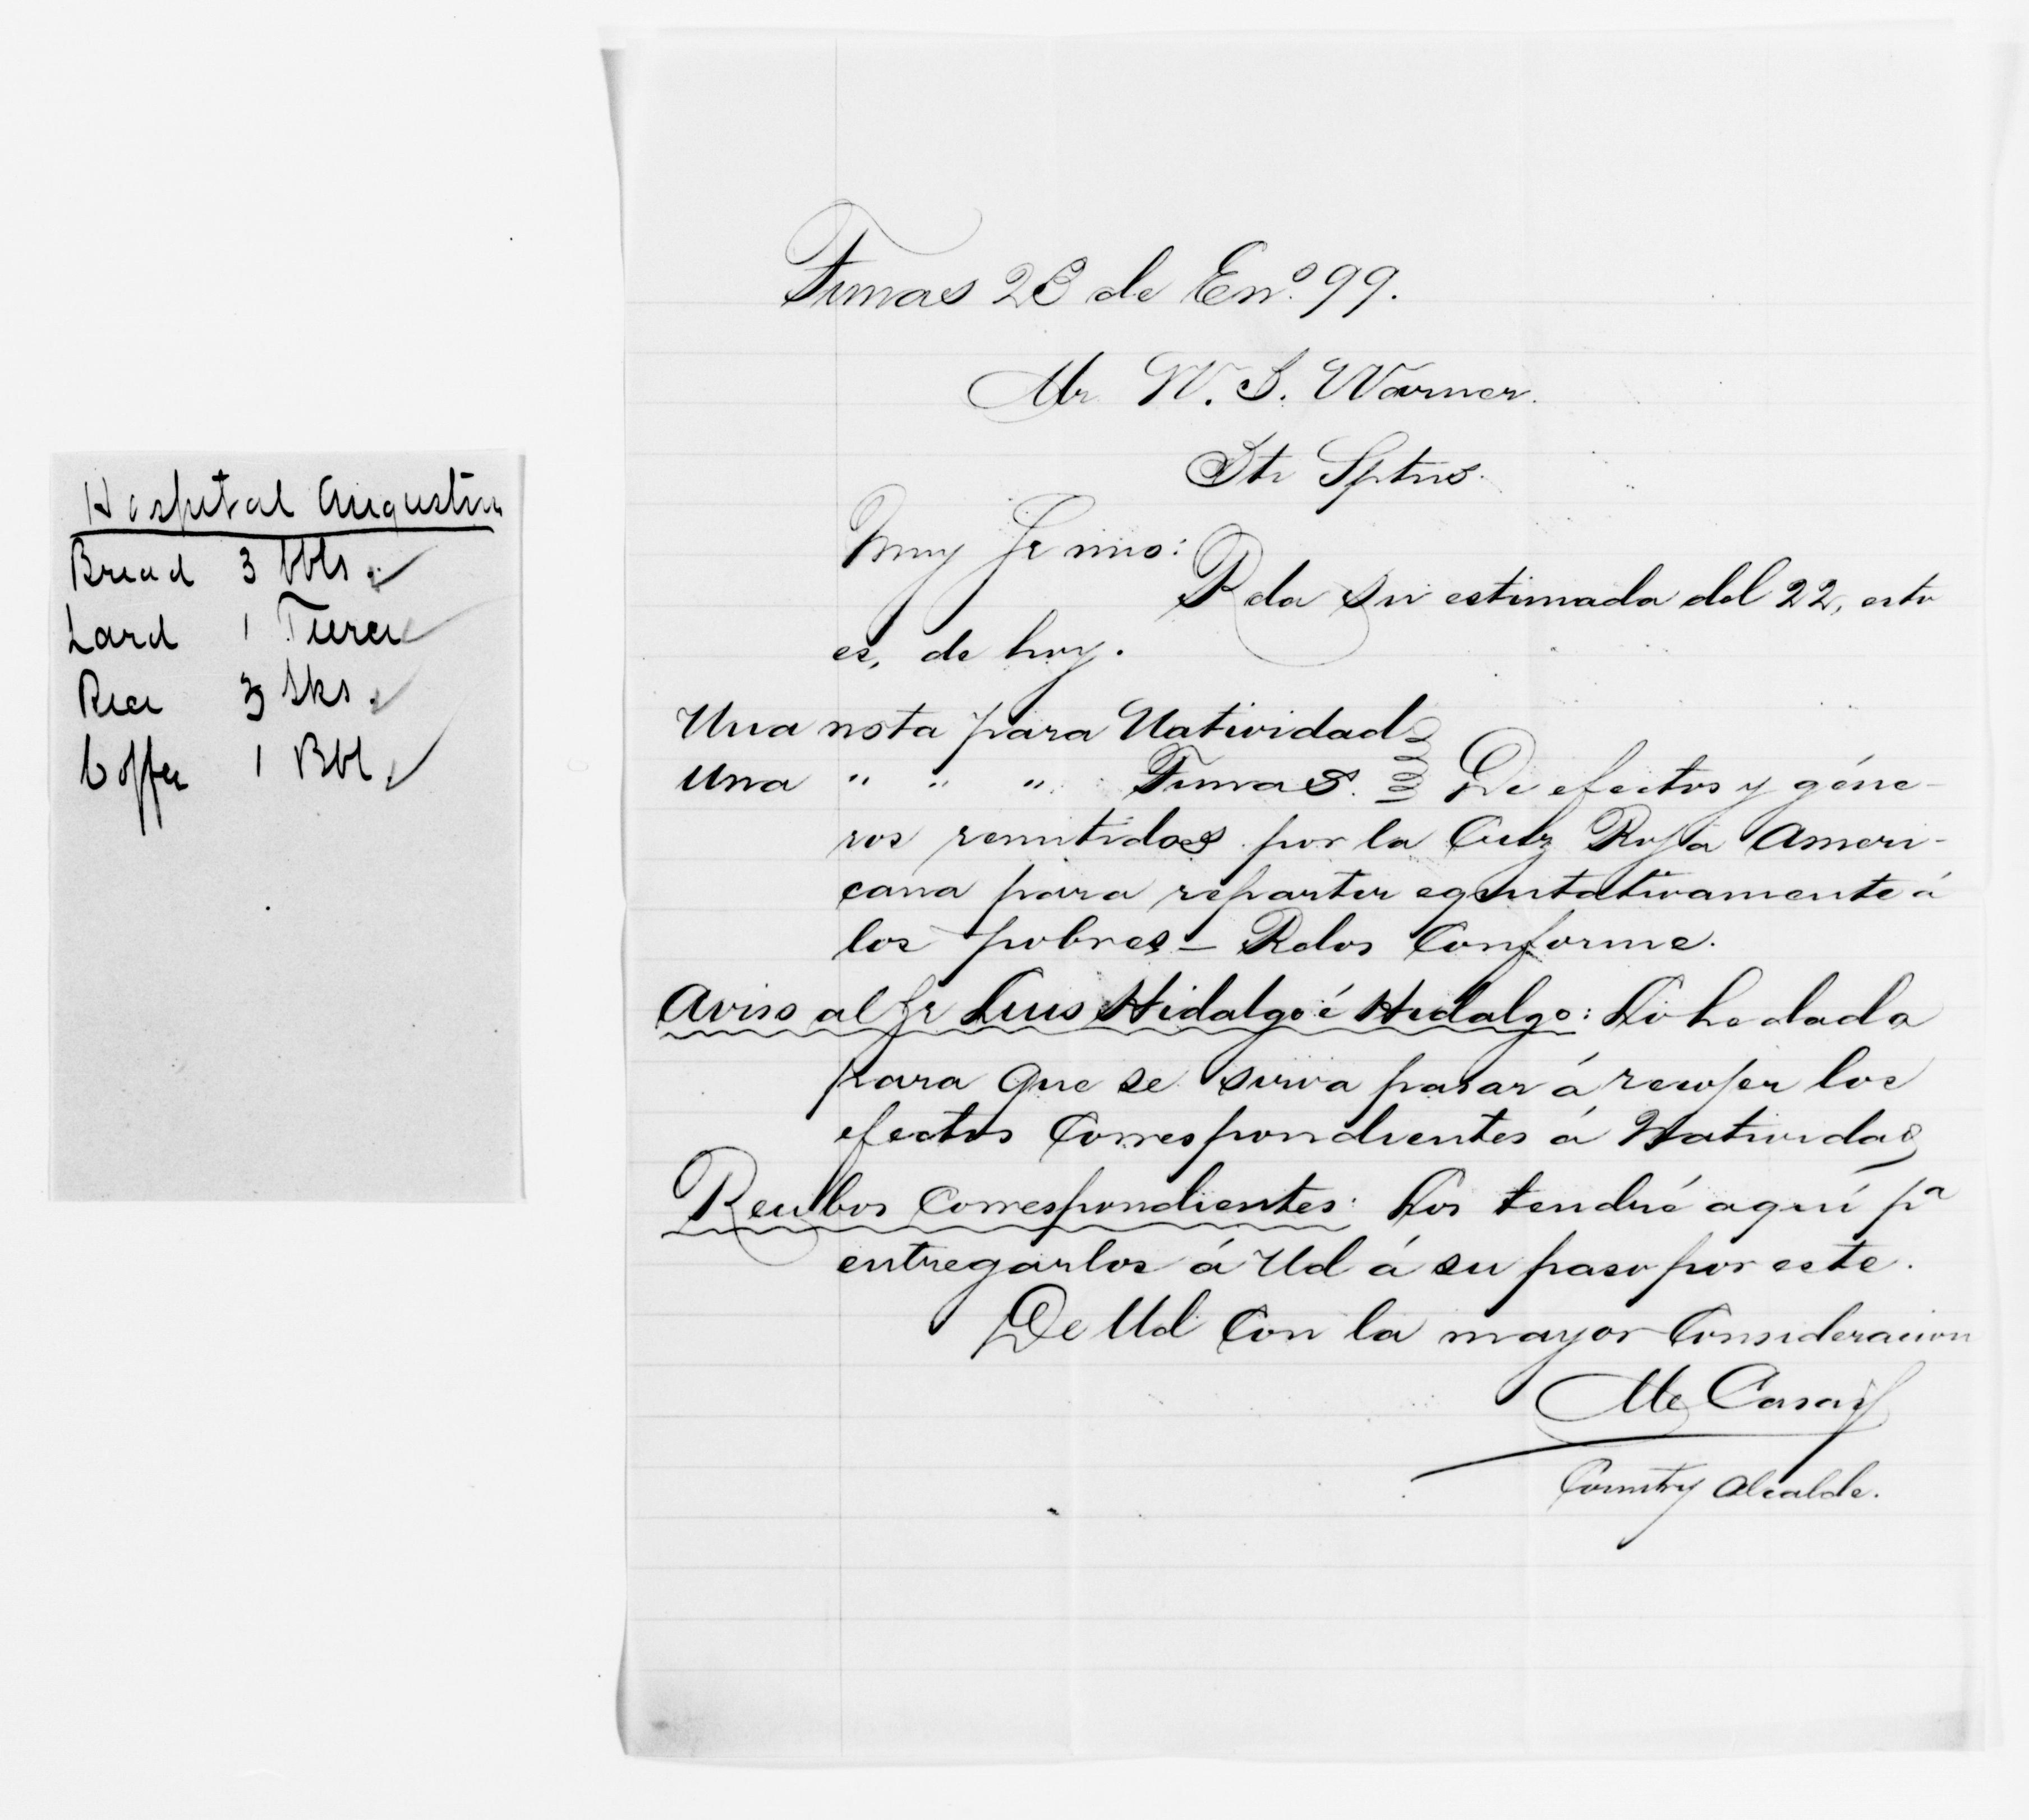 Hospital Augustin
Bread 3 bbls.
Lard 1 Tierce
Rice 3 Sks.
Coffee 1 Bbl.
Tunas 23 de Enº. 99.
Mr. W. S. Warner.
Sti Sptus.
Muy Sr mio:
Rda su estimada del 22, esto
es, de hoy.
Una nota para Natividad
Una " " " Tunas. De efectos y géne-
ros remitidos por la Cruz Roja Ameri-
cana para repartir equitativamente á
los pobres - Rdos Conforme.
Aviso al Sr Luis Hidalgo é Hidalgo: Lo he dado
para que se sirva pasar á recojer los
efectos Correspondientes á Natividad
Recibos Correspondientes: Los tendré aquí pª
entregarlos á Ud á su paso por este.
De Ud Con la mayor Consideracion
Casas
Country Alcalde.